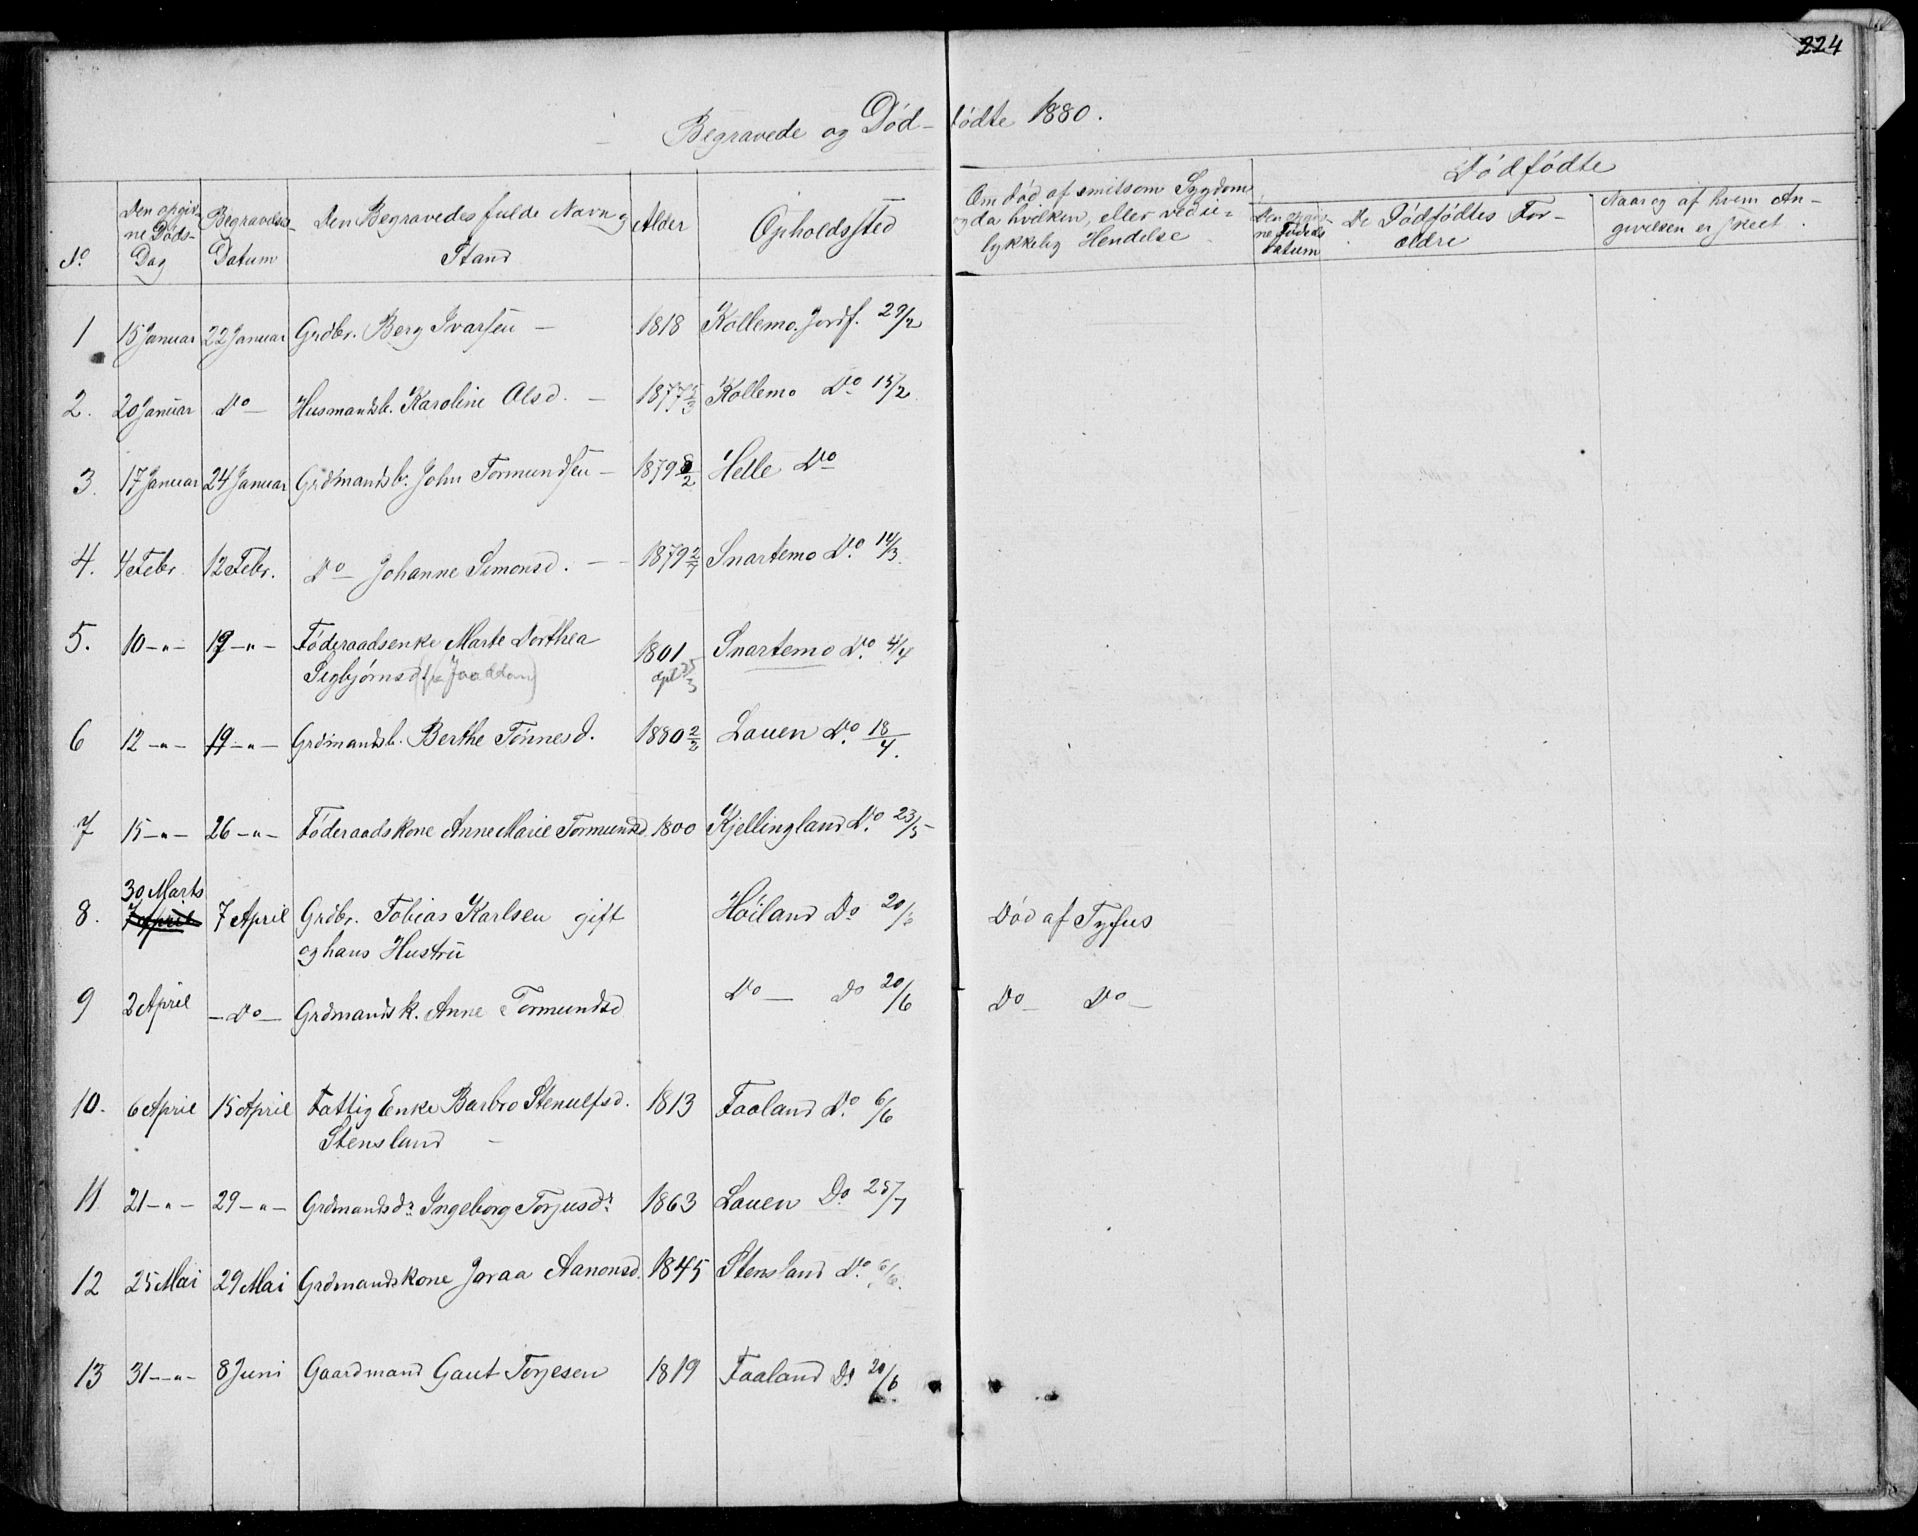 224
Begravede og Dødfødte 1880.
No
Den opgivne Døds-Dag
Begravelses-Datum
Den Begravedes fulde Navn og Stand
Alder
Opholdssted
Om død af smitsom Sygdom
og da hvilken, eller ved u-
lykkelig Hendelse
Dødfødte
Den opgivne Fødsels Datum
De Dødfødtes For-
ældre
Naar og af hvem An-
givelsen er skeet.
1 15 Januar 22 Januar Grdbr. Berg Ivarsen — 1818 Kollemo. Jordf. 29/2
2. 20 Januar Do — Husmandsb. Karoline Olsd. — 1877 5/3 Kollemo Do 15/2
3. 17 Januar 24 Januar Grdmandsb. John Tormundsen — 1879 8/2 Helle Do
4. 4 Febr. 12 Febr. Do — Johanne Simonsd. — 1879 2/7 Snartemo Do. 14/3.
5. 10 —"— 19 —"— Føderaadsenke Marte Dorthea 1801 Snartemo Do. 4/4
Sigbjørnsd
6 12 —"— 19 —"— Grdmandsb. Berthe Tønnesd. 1880 2/2 Lauen Do. 18/4.
7 15 —"— 26 —"— Føderaadskone Anne Marie Tormundsd 1800 Kjellingland Do. 23/5
30 Marts
8. 7 April 7 April Grdbr. Tobias Karlsen gift Høiland Do 20/6 Død af Tyfus
og hans Hustru
9 2 April — Do — Grdmandsk. Anne Tormundsd Do — Do 20/6 Do — Do —
10. 6 April 15 April Fattig Enke Barbro Stenulfsd. 1813 Faaland Do. 6/6
Stensland —
11 21 —"— 29 —"— Grdmandsdr. Ingeborg Torjusdr. 1863 Lauen Do. 25/7
12 25 Mai 29 Mai Grdmandskone Joraa Aanonsd. 1845 Stensland Do. 6/6.
13 31 —"— 8 Juni Gaardmand Gaut Torjesen 1819 Faaland Do 20/6